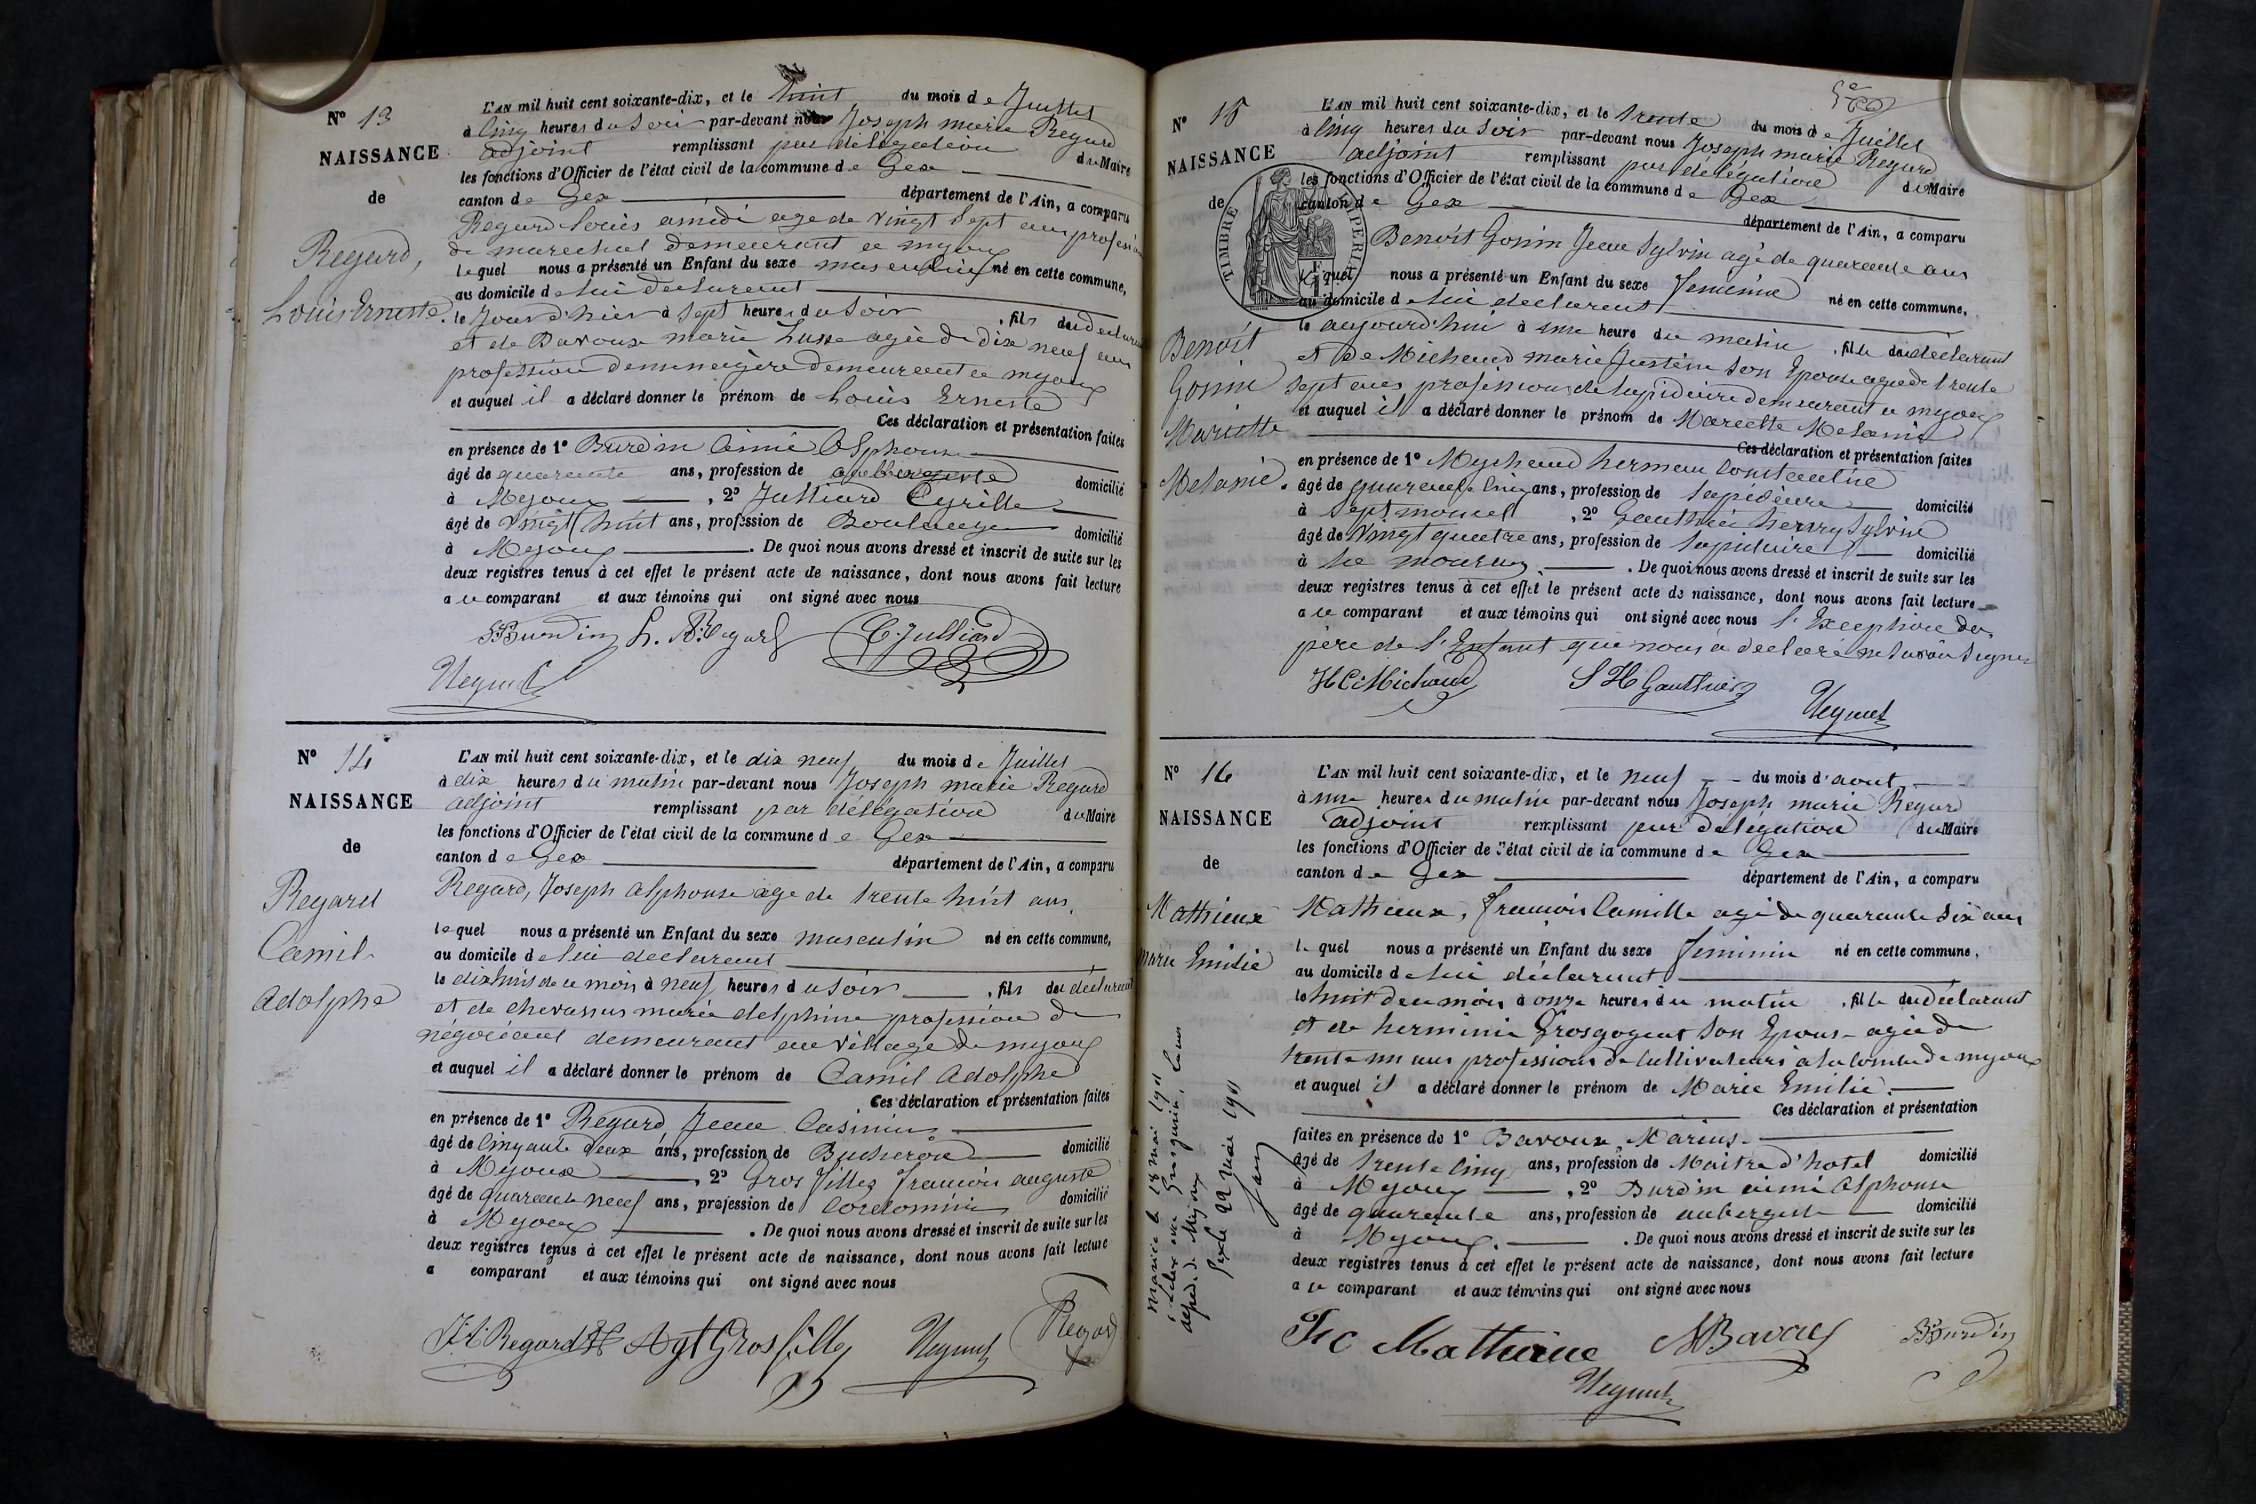 N° 13
NAISSANCE
de
Regard,
Louis Erneste.
L'AN mil huit cent soixante-dix, et le huit du mois de Juillet
à cinq heures du Soir par-devant nous Joseph marie Regard
adjoint remplissant par délégation du Maire
les fonctions d'Officier de l'état civil de la commune de Gex
canton de Gex département de l'Ain, a comparu
Regard Louis amédé agé de vingt Sept ans profession
de marechal demeurant a myoux
lequel nous a présenté un Enfant du sexe masculin né en cette commune,
au domicile de lui declarant
le Jour d'hier à Sept heures du Soir, fils du declarant
et de Bavoux marie agée de dix neuf ans
profession de menagère demeurant a myoux
et auquel il a déclaré donner le prénom de Louis Erneste
Ces déclaration et présentation faites
en présence de 1° Burdin Aimé Alphonse
âgé de quarante ans, profession de aubergiste domicilié
à Myoux, 2° Julliard Cyrille
âgé de Vingt huit ans, profession de Boulanger domicilié
à Myoux. De quoi nous avons dressé et inscrit de suite sur les
deux registres tenus à cet effet le présent acte de naissance, dont nous avons fait lecture
a ce comparant et aux témoins qui ont signé avec nous
Burdin L. A. Regard C. Julliard
Regard
N° 14
NAISSANCE
de
Regard
Camil
Adolphe
L'AN mil huit cent soixante-dix, et le dix neuf du mois de Juillet
à dix heures du matin par-devant nous Joseph marie Regard
adjoint remplissant par délégation du Maire
les fonctions d'Officier de l'état civil de la commune de Gex
canton de Gex département de l'Ain, a comparu
Regard, Joseph Alphonse age de trente huit ans,
lequel nous a présenté un Enfant du sexe masculin né en cette commune,
au domicile de lui declarant
le dix huit de ce mois à neuf heures du Soir, fils du déclarant
et de chevassus marie delphine profession de
négociant demeurant au village de myoux
et auquel il a déclaré donner le prénom de Camil Adolphe
Ces déclaration et présentation faites
en présence de 1° Regard Jean Casimir
âgé de cinquante deux ans, profession de Bucheron domicilié
à Myoux, 2° Gros fillez francois auguste
âgé de quarante neuf ans, profession de Cordonnier domicilié
à Myoux. De quoi nous avons dressé et inscrit de suite sur les
deux registres tenus à cet effet le présent acte de naissance, dont nous avons fait lecture
a comparant et aux témoins qui ont signé avec nous
Regard Agt Grosfillez Regard Regard
N° 15
NAISSANCE
de
TIMBRE IMPERIAL
Benoit
Gonin
Mariette
Melanie.
L'AN mil huit cent soixante-dix, et le trente du mois de Juillet
à cinq heures du Soir par-devant nous Joseph marie Regard
adjoint remplissant par délégation du Maire
les fonctions d'Officier de l'état civil de la commune de Gex
canton de Gex département de l'Ain, a comparu
Benoit Gonin Jean Sylvin agé de quarante ans
lequel nous a présenté un Enfant du sexe feminin né en cette commune,
au domicile de lui declarant
le aujourd'hui à une heure du matin, fille du déclarant
et de Michaud marie Justine son Epouse agée de trente
sept ans profession de lapidaire demeurant a myoux
et auquel il a déclaré donner le prénom de Mariette Melanie
Ces déclaration et présentation faites
en présence de 1° Mychaud herman Constantin
âgé de quarante cinq ans, profession de lapidaire domicilié
à Septmoncel, 2° Gauthier henry Sylvin
âgé de Vingt quatre ans, profession de lapidaire domicilié
à. De quoi nous avons dressé et inscrit de suite sur les
deux registres tenus à cet effet le présent acte de naissance, dont nous avons fait lecture
a ce comparant et aux témoins qui ont signé avec nous l'Exception du
père de l'Enfant qui nous a declaré ne Savoir Signer
H C Michaud S H Gauthier Regard
N° 16
NAISSANCE
de
Mathieux
Marie Emilie
L'AN mil huit cent soixante-dix, et le neuf du mois d'aout
à une heures du matin par-devant nous Joseph marie Regard
adjoint remplissant par délégation du Maire
les fonctions d'Officier de l'état civil de la commune de Gex
canton de Gex département de l'Ain, a comparu
Mathieux, francois Camille agé de quarante dix ans
lequel nous a présenté un Enfant du sexe feminin né en cette commune,
au domicile de lui déclarant
le huit de ce mois à onze heures du matin, fille du déclarant
et de herminie Grosgogeat son Epouse agée de
trente un ans profession de cultivateurs a la combe de myoux
et auquel il a déclaré donner le prénom de Marie Emilie.
Ces déclaration et présentation
faites en présence de 1° Bavoux Marius.
âgé de trente cinq ans, profession de Maitre d'hotel domicilié
à Myoux, 2° Burdin aimé Alphonse
âgé de quarante ans, profession de aubergiste domicilié
à Myoux. De quoi nous avons dressé et inscrit de suite sur les
deux registres tenus à cet effet le présent acte de naissance, dont nous avons fait lecture
a ce comparant et aux témoins qui ont signé avec nous
Mathieux Bavoux Burdin
Regard
Mariée le 18 mai 1911
à
de Mijoux
Gex le 22 Mai 1911